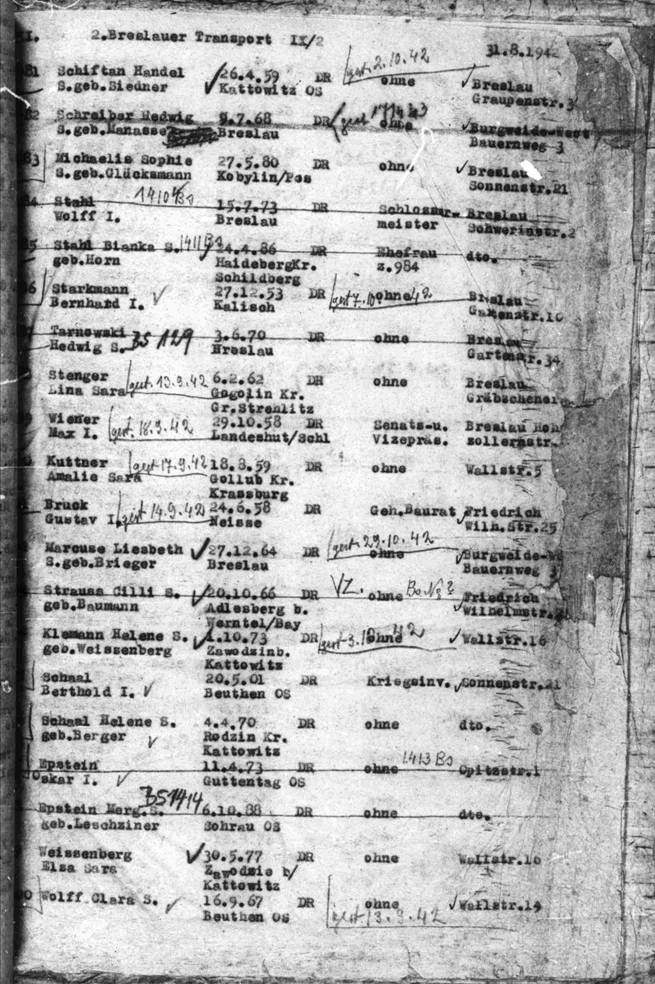 2.Breslauer Transport IX/2 31.8.1942
Schiftan Handel 26.4.59 DR gest. 2.10.42 ohne Breslau
S.geb.Biedner Kattowitz OS Graupenstr.3
Schreiber Hedwig 9.7.68 DR gest ohne Burgweide-West
S.geb.Manasse Breslau Bauernweg 3
Michaelis Sophie 27.5.80 DR ohne Breslau
S.geb.Glücksmann Kobylin/Pos Sonnenstr.21
Stahl 1410 Bs 15.7.73 DR Schlosser- Breslau
Wolff I. Breslau meister Schwerinstr.2
Stahl Bianka S. 1411 Bs 4.4.86 DR Ehefrau dto.
geb.Horn HaidebergKr. z.984
Schildberg
Starkmann 27.12.53 DR ohne Breslau
Bernhard I. Kalisch Gartenstr.10
Tarnowski 3.6.70 DR ohne Breslau
Hedwig S. Bs 129 Breslau Gartenstr.34
Stenger gest. 13.9.42 6.2.62 DR ohne Breslau
Lina Sara Gogolin Kr. Gräbschener
Gr.Strehlitz
Wiener gest. 18.9.42 29.10.58 DR Senats-u. Breslau Hoh
Max I. Landeshut/Schl Vizepräs. zollernstr.
Kuttner gest 17.9.42 18.8.59 DR ohne Wallstr.5
Amalie Sara Gollub Kr.
Krassburg
Bruck gest 14.9.42 24.6.58 DR Geh.Baurat Friedrich
Gustav I. Neisse Wilh.Str.25
Marcuse Liesbeth 27.12.64 DR gest. 29.10.42 ohne Burgweide-We
S.geb.Brieger Breslau Bauernweg 3
Strauss Cilli S. 20.10.66 DR VZ. ohne Friedrich
geb.Baumann Adlesberg b. Wilhelmstr.
Werntel/Bay
Klemann Helene S. 1.10.73 DR ohne Wallstr.16
geb.Weissenberg Zawodzinb.
Kattowitz
Schaal 20.5.01 DR Kriegsinv. Sonnenstr.21
Berthold I. Beuthen OS
Schaal Helene S. 4.4.70 DR ohne dto.
geb.Berger Rodzin Kr.
Kattowitz
Epstein 11.4.73 DR ohne 1413 Bs Opitzstr.1
Oskar I. Guttentag OS
Epstein Marg.S. Bs 1414 6.10.88 DR ohne dto.
geb.Leschziner Sohrau OS
Weissenberg 30.5.77 DR ohne Wallstr.16
Elsa Sara Zawodzie b/
Kattowitz
Wolff Clara S. 16.9.67 DR ohne Wallstr.14
Beuthen OS gest 13.9.42